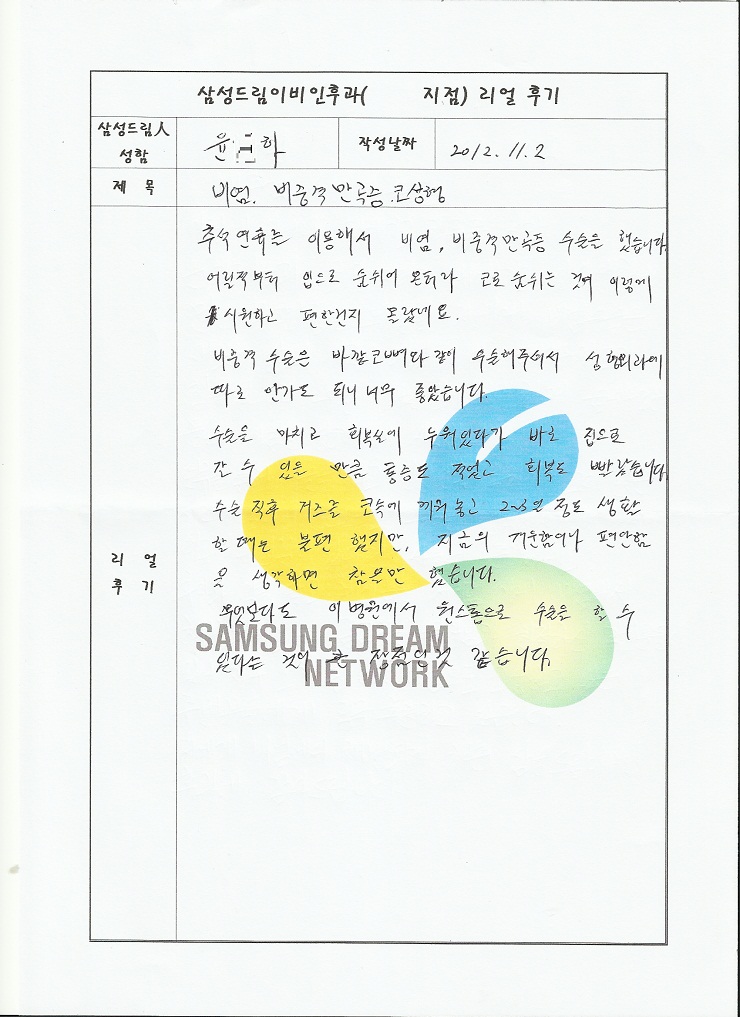 삼성드림이비인후과( 지점) 리얼 후기
삼성드림人
성함
윤 하
작성날짜
2012. 11. 2
제 목
비염. 비중격만곡증.코성형
추석연휴를 이용해서 비염, 비중격만곡증 수술을 했습니다.
어릴적부터 입으로 숨쉬어 온터라 코로 숨쉬는 것이 이렇게
시원하고 편한건지 몰랐네요.
비중격 수술은 바깥코뼈와 같이 수술해주셔서 성형외과에
따로 안가도 되니 너무 좋았습니다.
수술을 마치고 회복실에 누워있다가 바로 집으로
갈 수 있을 만큼 통증도 적었고 회복도 빨랐습니다.
수술 직후 거즈를 코속에 끼워 놓고 2~3일 정도 생활
할 때는 불편 했지만, 지금의 개운함이나 편안함
을 생각하면 참을만 했습니다.
무엇보다도 이 병원에서 원스톱으로 수술을 할 수
있다는 것이 큰 장점인것 같습니다.
리 얼
후 기
SAMSUNG DREAM
NETWORK